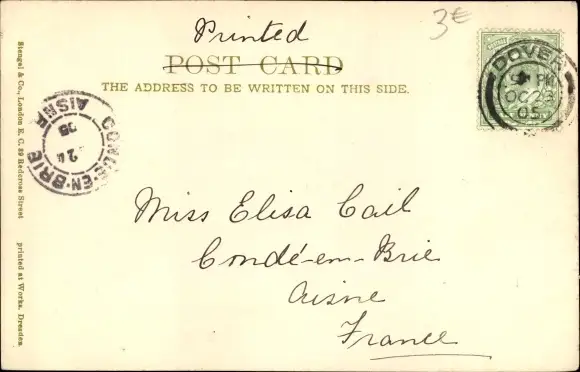 Printed
POST CARD
THE ADDRESS TO BE WRITTEN ON THIS SIDE.
3€
DOVER
PM
OC 23
05
CONDÉ-EN-BRIE
AISNE
24
05
Miss Elisa Cail
Condé-en-Brie
Aisne
France
Stengel & Co., London E. C. 39 Redcross Street
printed at Works, Dresden